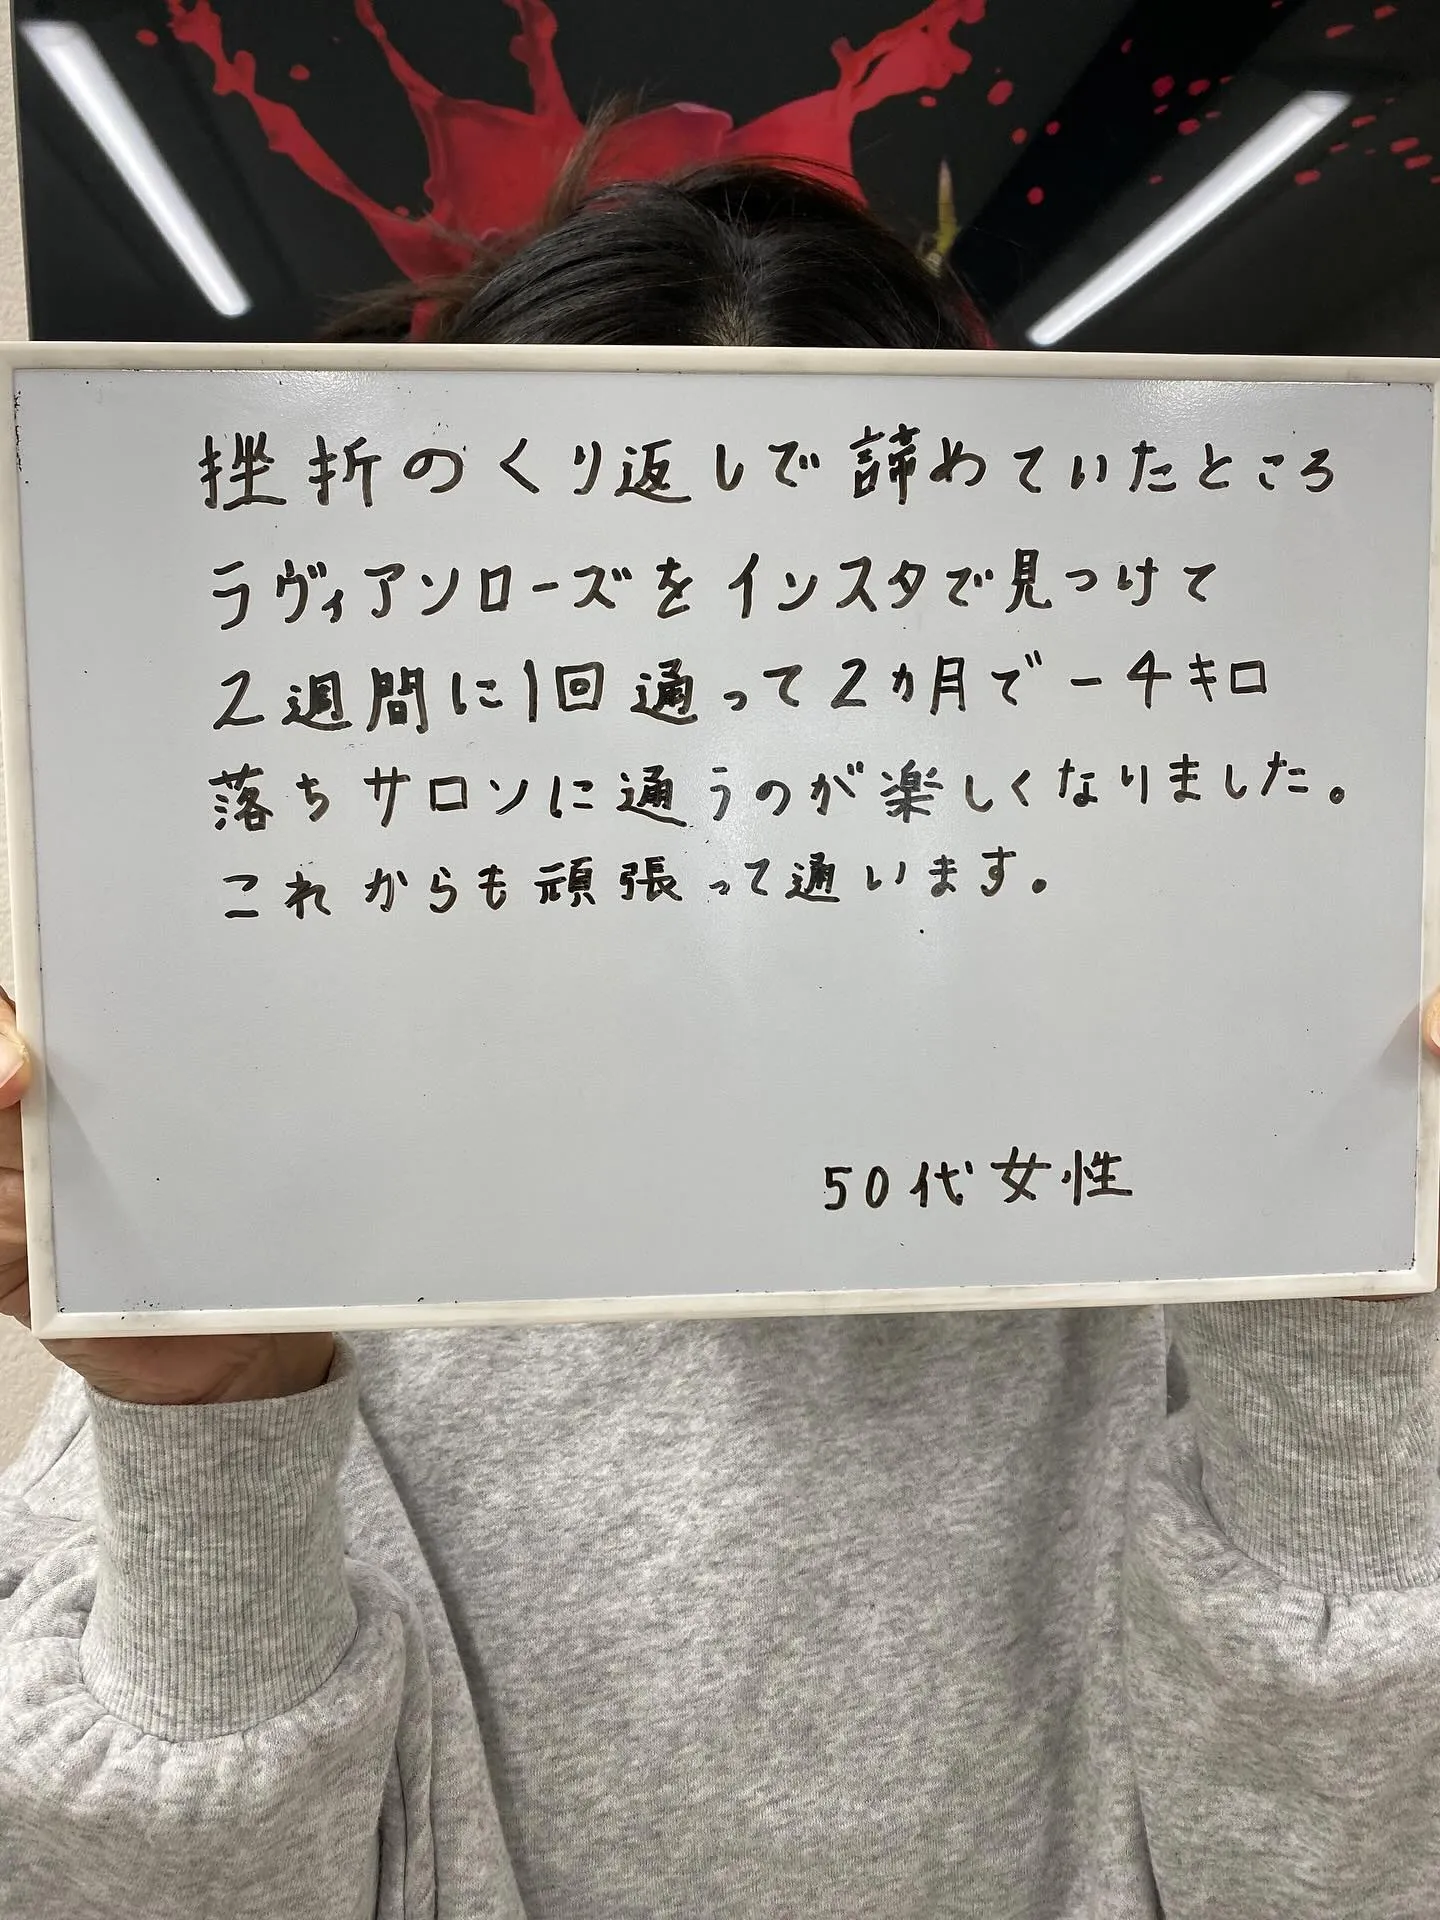 挫折のくり返しで諦めていたところ
ラヴィアンローズをインスタで見つけて
2週間に1回通って2ヵ月で-4キロ
落ちサロンに通うのが楽しくなりました。
これからも頑張って通います。
50代女性